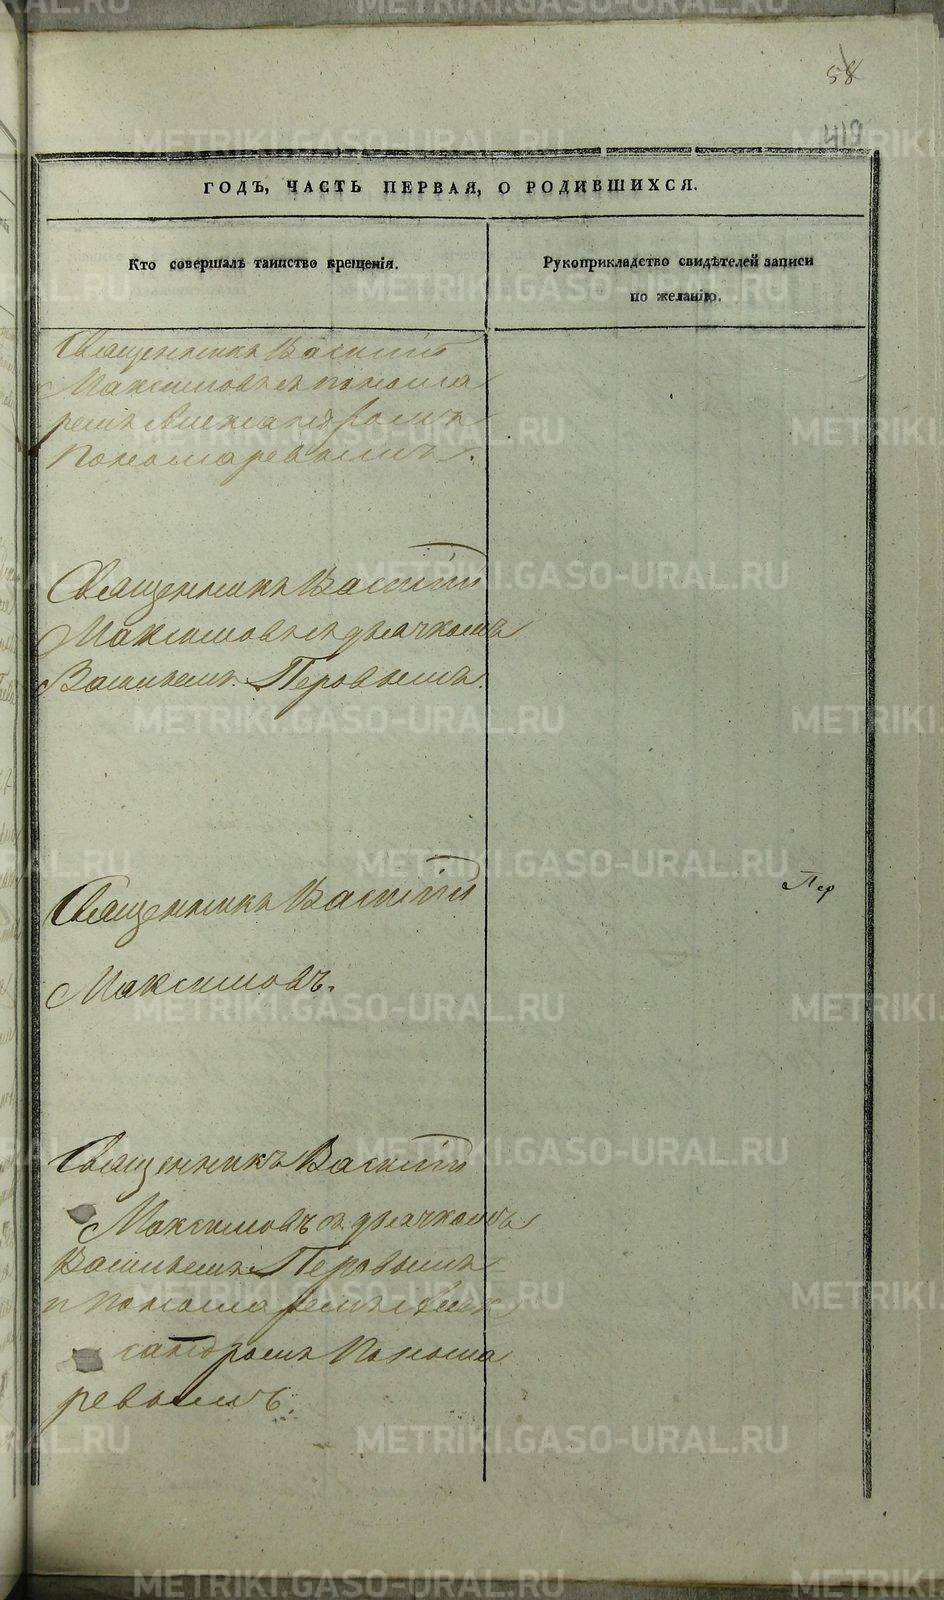 58
419
ГОДЪ, ЧАСТЬ ПЕРВАЯ, О РОДИВШИХСЯ.
Кто совершалъ таинство крещенія.
Рукоприкладство свидѣтелей записи
по желанію.
Священникъ Василій
Максимовъ съ понома
ремъ Александромъ
Пономаревымъ.
Священникъ Василій
Максимовъ съ дьячкомъ
Васильемъ Перовымъ.
Священникъ Василій
Пер
Максимовъ.
Священникъ Василій
Максимовъ съ дьячкомъ
Васильемъ Перовымъ
и пономаремъ Алек
сандромъ Понома
ревымъ.
METRIKI.GASO-URAL.RU